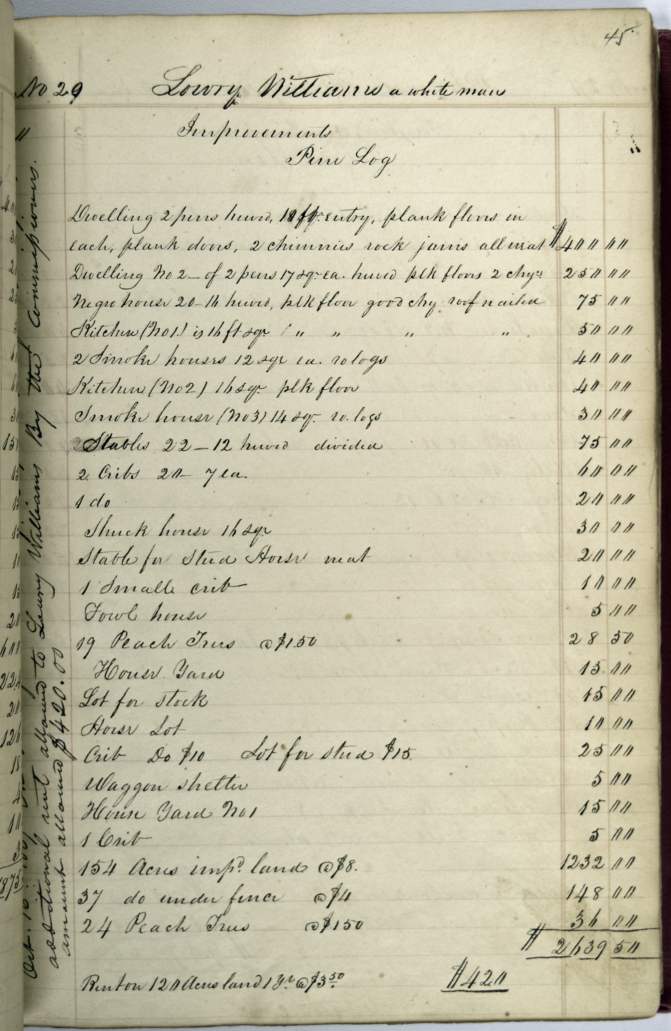 45
No 29 Lowry Williams a white man
"
Improvements
Pine Log
Dwelling 2 pens hewd, 18 ft entry, plank floors in
each, plank doors, 2 chimnies rock jams all neat $400 00
Dwelling No 2 – of 2 pens 17 sqr ea. hewd plk floors 2 chys 250 00
Negro house 20–16 hewd, plk floor good chy roof nailed 75 00
Kitchen (No1) is 16 ft sqr " " " " 50 00
2 Smoke houses 12 sqr ea. ro logs 40 00
Kitchen (No2) 16 sqr plk floor 40 00
Smoke house (No3) 14 sqr ro. logs 30 00
Stables 22–12 hewd divided 75 00
2 Cribs 20 7 ea. 60 00
1 do 20 00
Shuck house 16 sqr 30 00
Stable for Stud Horse neat 20 00
1 Smalle crib 10 00
Fowl house 5 00
19 Peach Trees @ $1.50 28 50
House Yard 15 00
Lot for stock 15 00
Horse Lot 10 00
Crib Do $10 Lot for stud $15 25 00
Waggon shelter 5 00
House Yard No1 15 00
1 Crib 5 00
154 Acres impd. land @ $8. 1232 00
37 do under fence @ $4 148 00
24 Peach Trees @ $1 50 36 00
$ 2639 50
Rent on 120 Acres land 1 yr. @ $3.50 $420
additional rent allowed to Lowry Williams By the Commissioners.
amount allowed $420.00